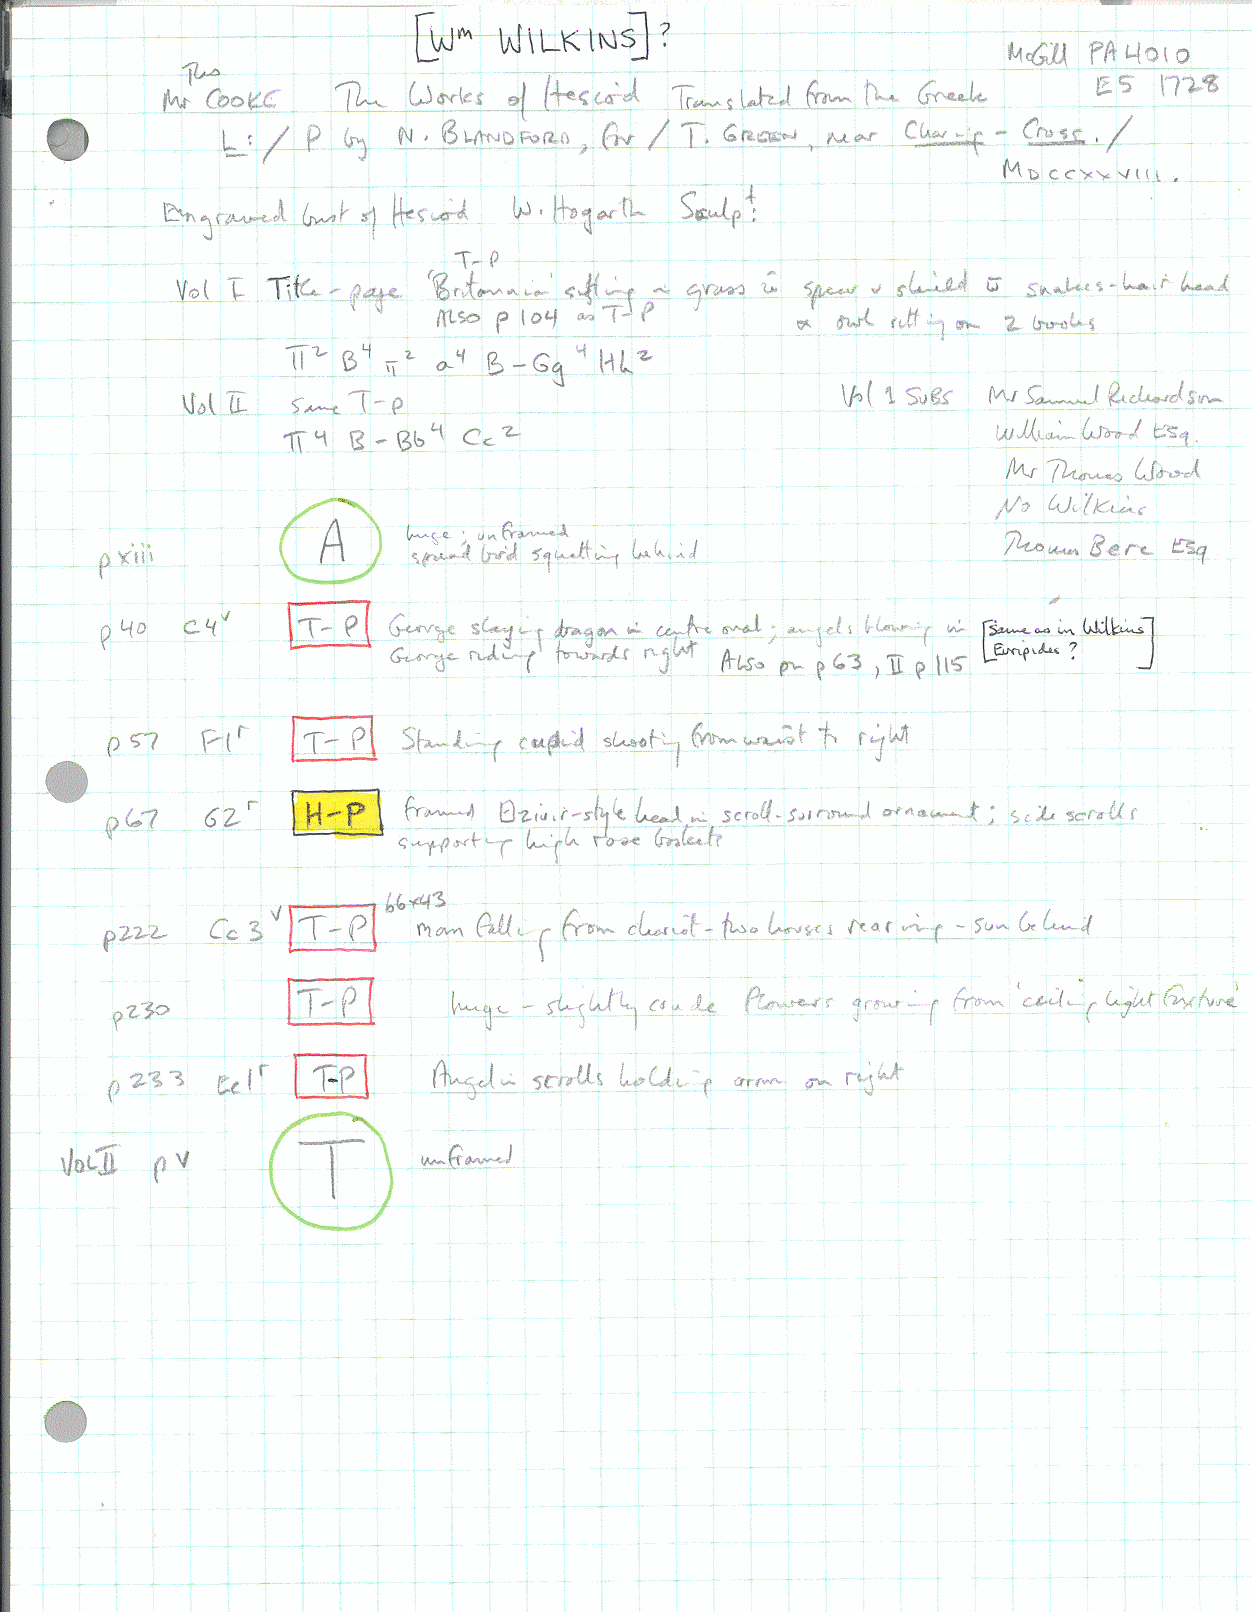 [Wm WILKINS]?
McGill PA4010
E5 1728
Tho
Mr COOKE The Works of Hesiod Translated from the Greek
L:/ P by N. BLANDFORD, for / T. GREEN, near Charing-Cross./
MDCCXXVIII.
Engraved bust of Hesiod W. Hogarth Sculpt:
T-P
Vol I Title-page 'Britannia' sitting on grass w spear & shield w snakes-hair head
Also p 104 as T-P
& owl sitting on 2 books
π2 B4 π2 a4 B-Gg4 Hh2
Vol II same T-p
π4 B-Bb4 Cc2
Vol 1 SUBS Mr Samuel Richardson
William Wood ESq.
Mr Thomas Wood
No Wilkins
Thomas Bere ESq
p xiii A huge; unframed
spread bird squatting behind
p40 C4v T-P George slaying dragon in centre oval; angels blowing in
George riding towards right Also on p63, II p115
[Same as in Wilkins
Euripides?]
p57 F1r T-P Standing cupid shooting from waist to right
p67 G2r H-P framed -style head in scroll-surround ornament; side scrolls
supporting high rose baskets
p222 Cc3v T-P 66x43 man falling from chariot - two horses rearing - sun behind
p230 T-P huge - slightly crude flowers growing from 'ceiling light fixture'
p233 Ee1r T-P Angel in scrolls holding arm on right
Vol II p v T unframed